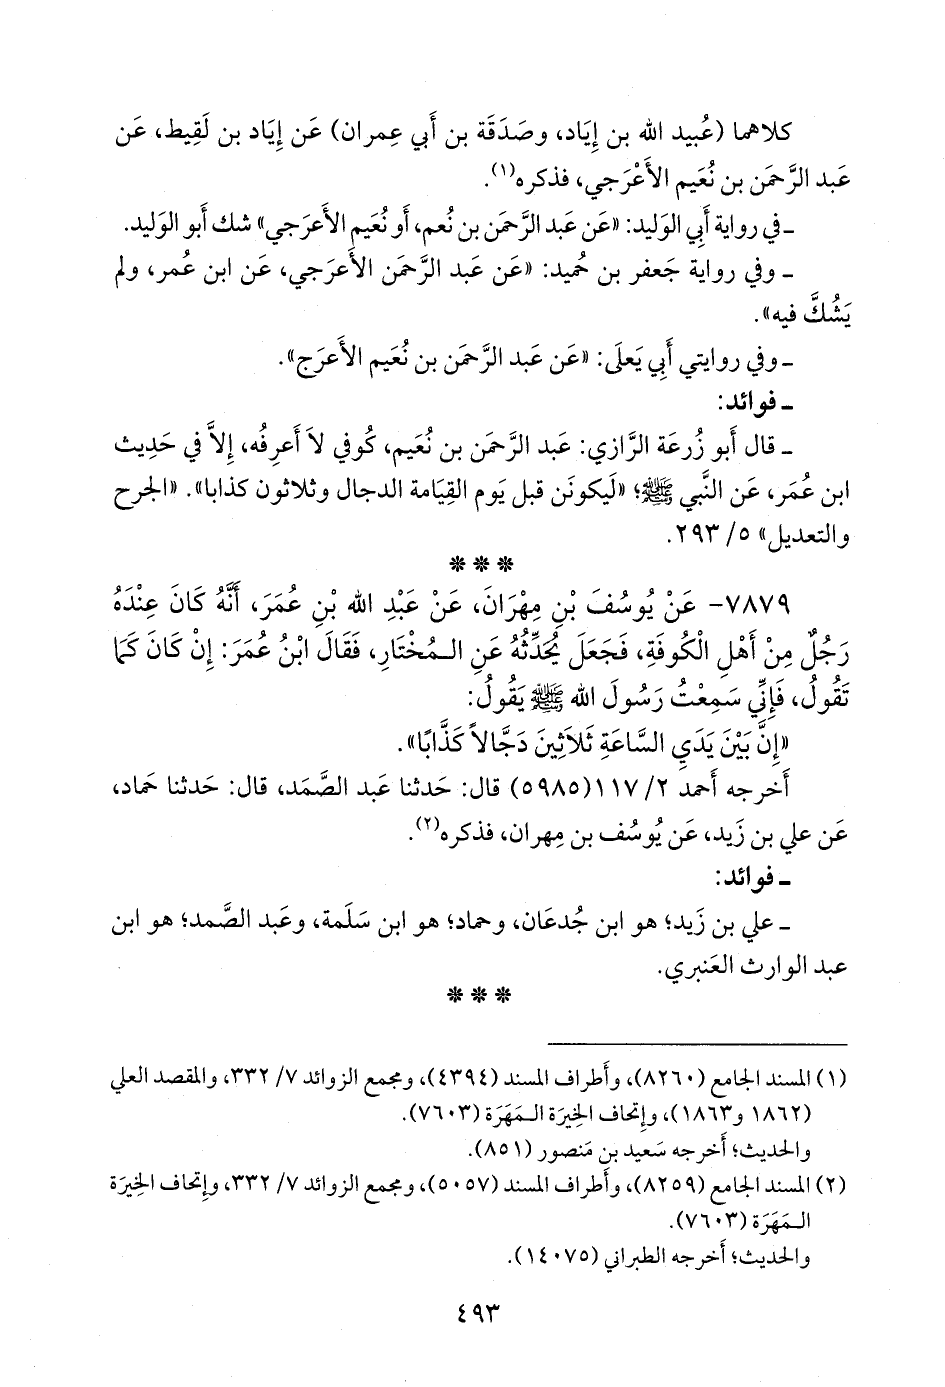 كلاهما (عُبيد الله بن إِياد، وصَدَقَة بن أَبي عِمران) عَن إِياد بن لَقِيط، عَن
عَبد الرَّحمَن بن نُعَيم الأَعْرَجي، فذكره(١).
ـ في رواية أَبي الوَليد: «عَن عَبد الرَّحمَن بن نُعم، أَو نُعَيم الأَعرَجي» شك أَبو الوَليد.
ـ وفي رواية جَعفر بن حُميد: «عَن عَبد الرَّحمَن الأَعرَجي، عَن ابن عُمر، ولم
يَشُكَّ فيه».
ـ وفي روايتي أَبي يَعلَى: «عَن عَبد الرَّحمَن بن نُعَيم الأَعرَج».
ـ فوائد:
ـ قال أَبو زُرعَة الرَّازي: عَبد الرَّحمَن بن نُعَيم، كُوفي لاَ أَعرِفُه، إِلاَّ في حَدِيث
ابن عُمَر، عَن النَّبي ﷺ؛ «لَيكونَن قبل يَوم القِيَامة الدجال وثلاثون كذابا». «الجرح
والتعديل» ٥/ ٢٩٣.
***
٧٨٧٩- عَنْ يُوسُفَ بْنِ مِهْرَانَ، عَنْ عَبْدِ الله بْنِ عُمَرَ، أَنَّهُ كَانَ عِنْدَهُ
رَجُلٌ مِنْ أَهْلِ الْكُوفَةِ، فَجَعَلَ يُحَدِّثُهُ عَنِ الـمُخْتَارِ، فَقَالَ ابْنُ عُمَرَ: إِنْ كَانَ كَمَا
تَقُولُ، فَإِنِّي سَمِعْتُ رَسُولَ الله ﷺ يَقُولُ:
«إِنَّ بَيْنَ يَدَيِ السَّاعَةِ ثَلاَثِينَ دَجَّالاً كَذَّابًا».
أَخرجه أَحمد ٢/ ١١٧(٥٩٨٥) قال: حَدثنا عَبد الصَّمَد، قال: حَدثنا حَماد،
عَن علي بن زَيد، عَن يُوسُف بن مِهران، فذكره(٢).
ـ فوائد:
ـ علي بن زَيد؛ هو ابن جُدعَان، وحماد؛ هو ابن سَلَمة، وعَبد الصَّمد؛ هو ابن
عبد الوارث العَنبري.
***
(١) المسند الجامع (٨٢٦٠)، وأَطراف المسند (٤٣٩٤)، ومجمع الزوائد ٧/ ٣٣٢، والمقصد العلي
(١٨٦٢ و١٨٦٣)، وإِتحاف الخِيرَة الـمَهَرَة (٧٦٠٣).
والحديث؛ أَخرجه سَعيد بن مَنصور (٨٥١).
(٢) المسند الجامع (٨٢٥٩)، وأَطراف المسند (٥٠٥٧)، ومجمع الزوائد ٧/ ٣٣٢، وإِتحاف الخِيرَة
الـمَهَرَة (٧٦٠٣).
والحديث؛ أَخرجه الطبراني (١٤٠٧٥).
٤٩٣